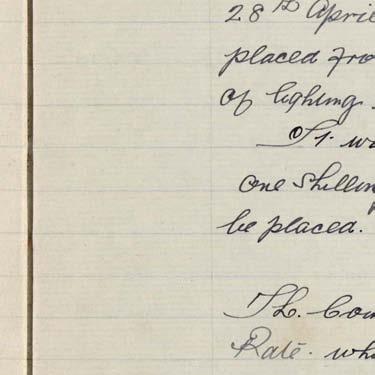 28th April
placed fro
of lighting.
It wa
one shilling
be placed.
Th. Com
Rate. wh